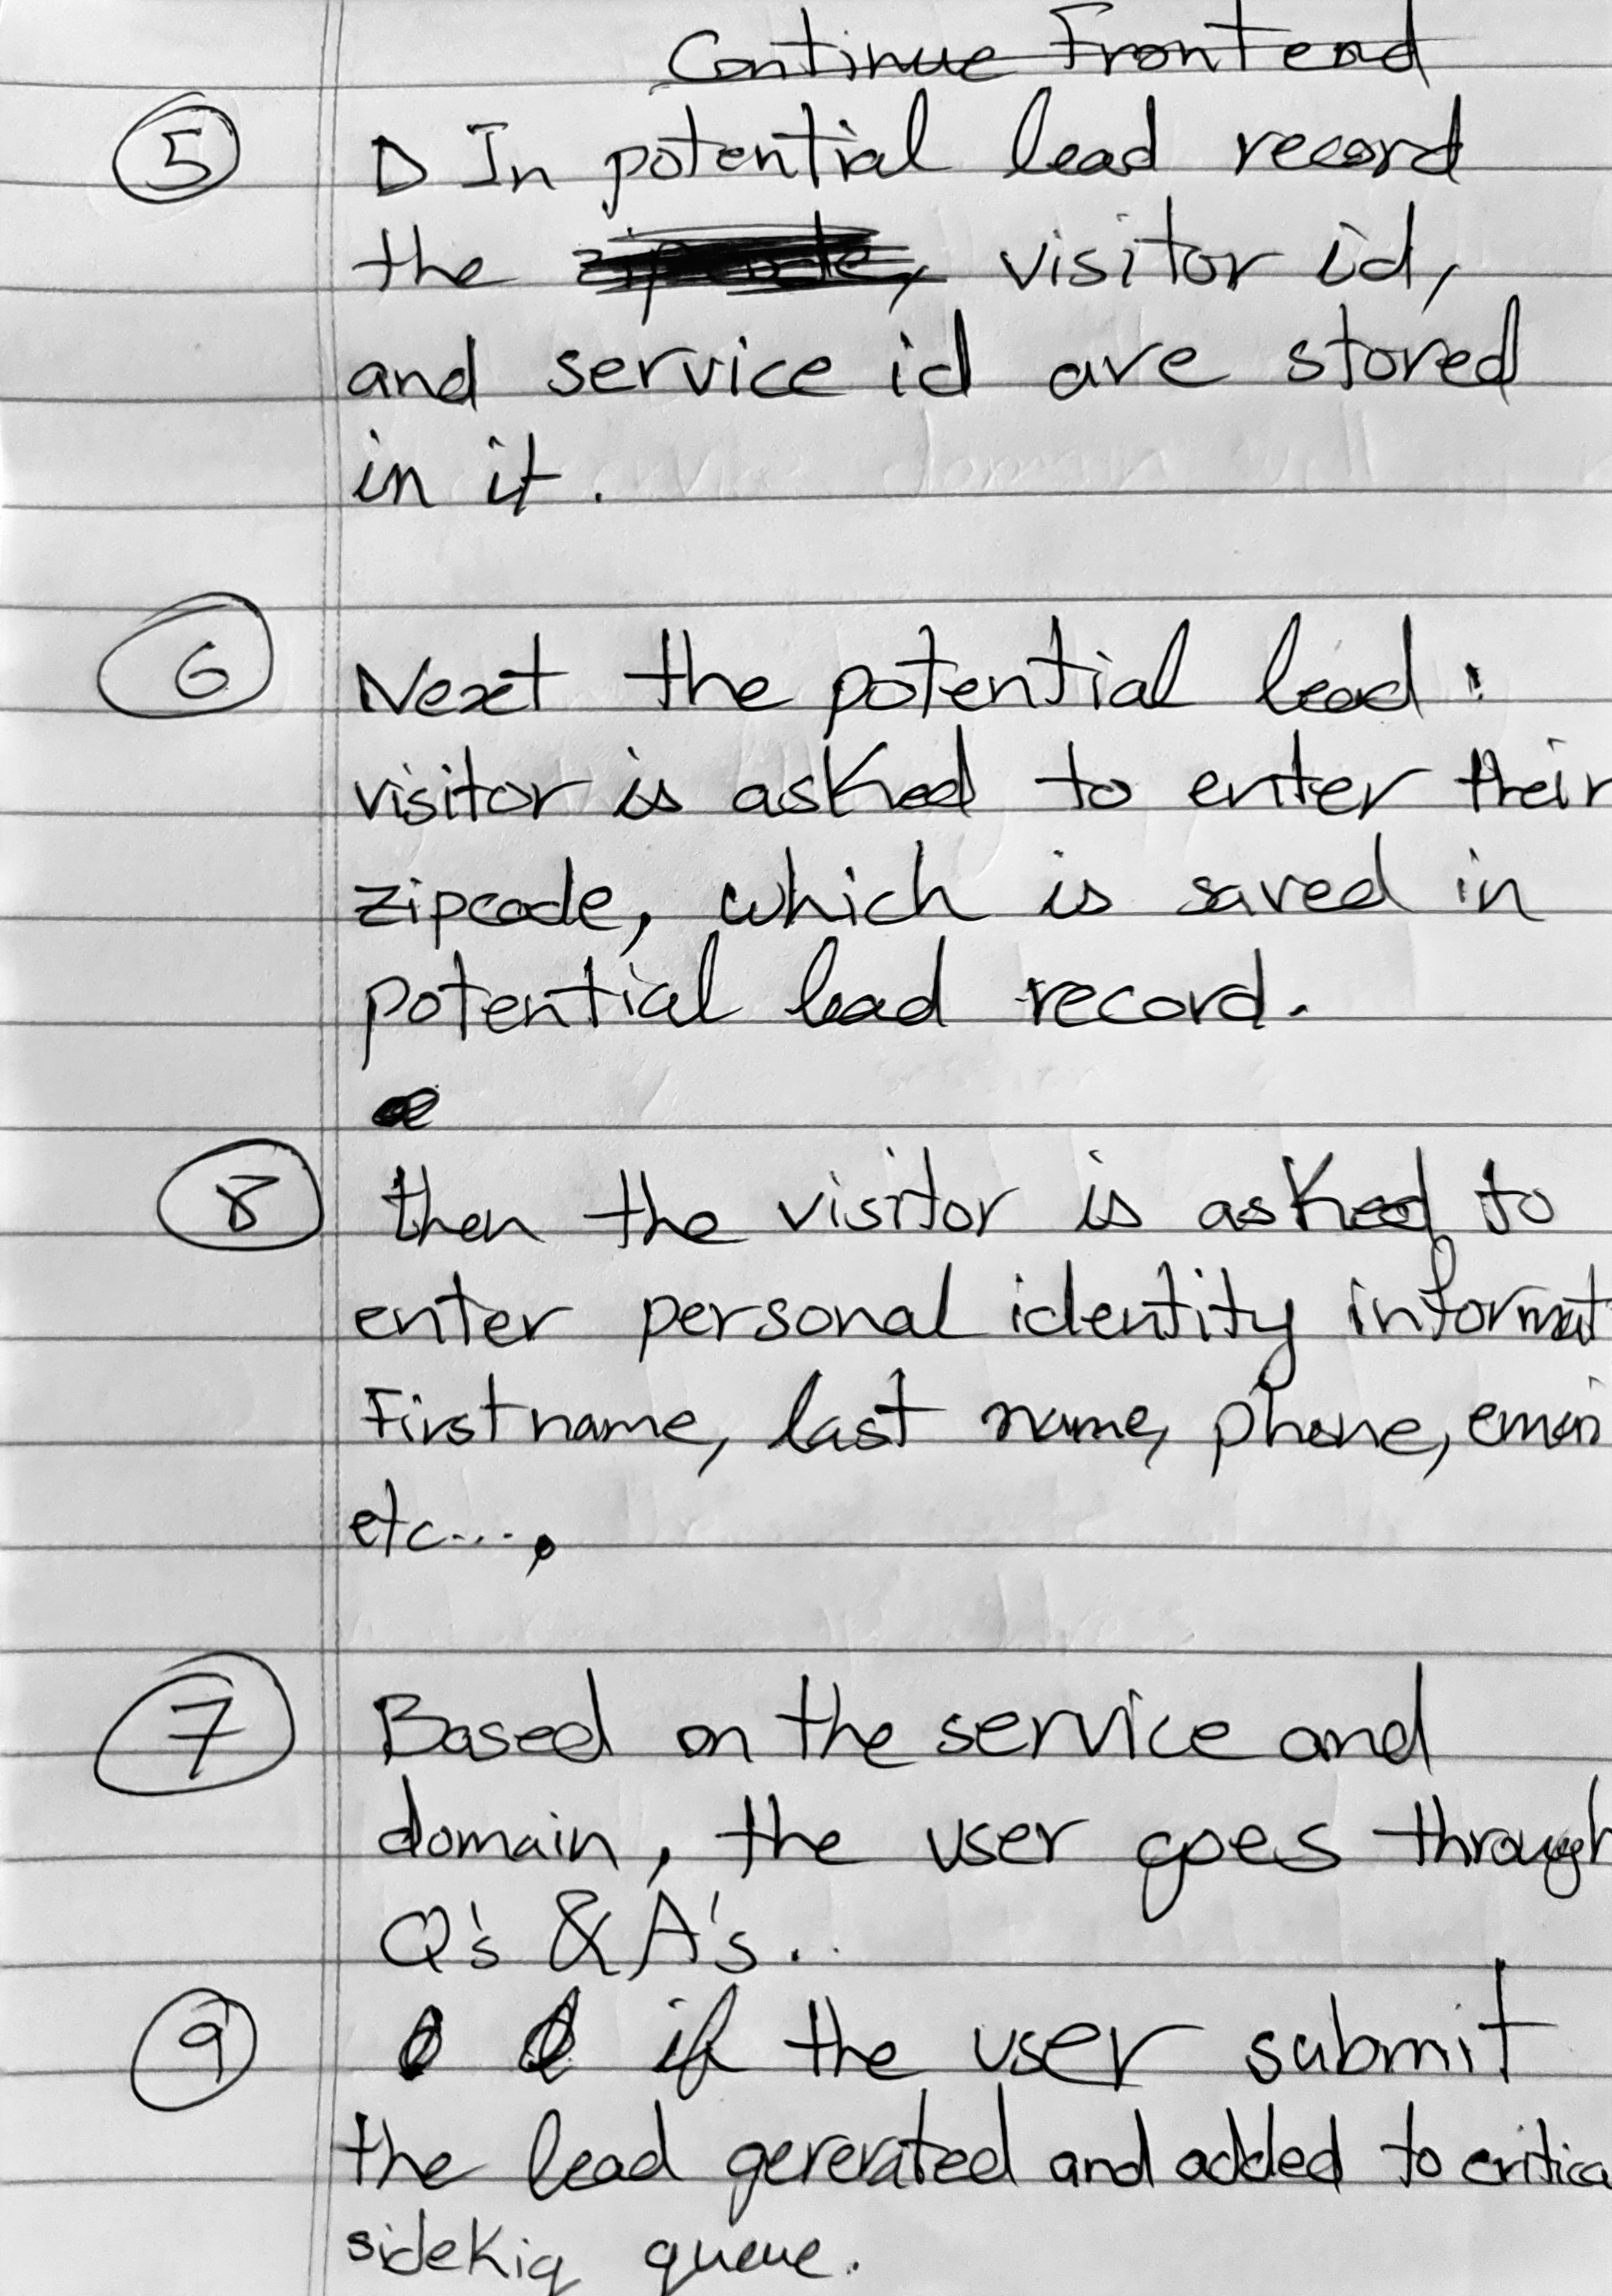 Continue Frontend
5 D In potential lead record
the zipcode, visitor id,
and service id are stored
in it.
6 Next the potential lead :
visitor is asked to enter their
zipcode, which is saved in
potential lead record.
8 then the visitor is asked to
enter personal identity informat
First name, last name, phone, emai
etc...,
7 Based on the service and
domain, the user goes through
Q's & A's.
9 if the user submit
the lead gererated and added to critica
sidekiq queue.